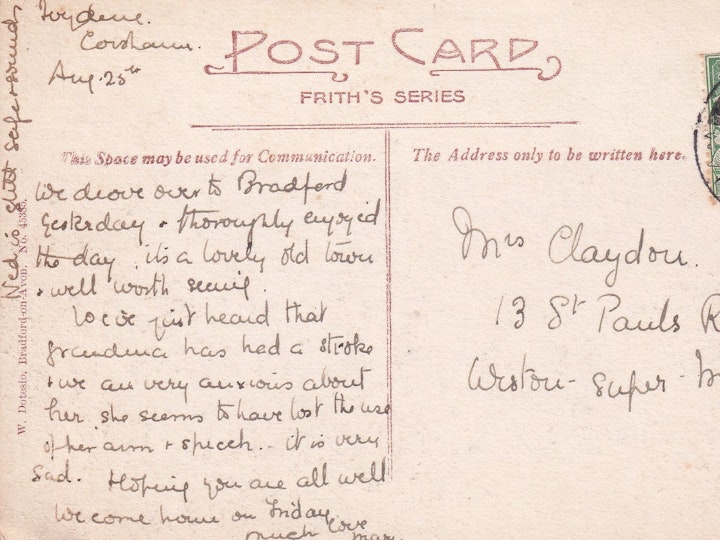 Ivydene.
Corsham.
Aug. 25th
POST CARD
FRITH'S SERIES
This Space may be used for Communication.
The Address only to be written here.
We drove over to Bradford
yesterday & thoroughly enjoyed
the day. it's a lovely old town
& well worth seeing.
We've just heard that
grandma has had a stroke
& we are very anxious about
her. she seems to have lost the use
of her arm & speech. - it is very
sad. Hoping you are all well
We come home on Friday.
much love
Mary
Ned is still safe & sound
W. Dotesio, Bradford-on-Avon. No. 45335.
Mrs Claydon.
13 St Pauls R
Weston-super-M